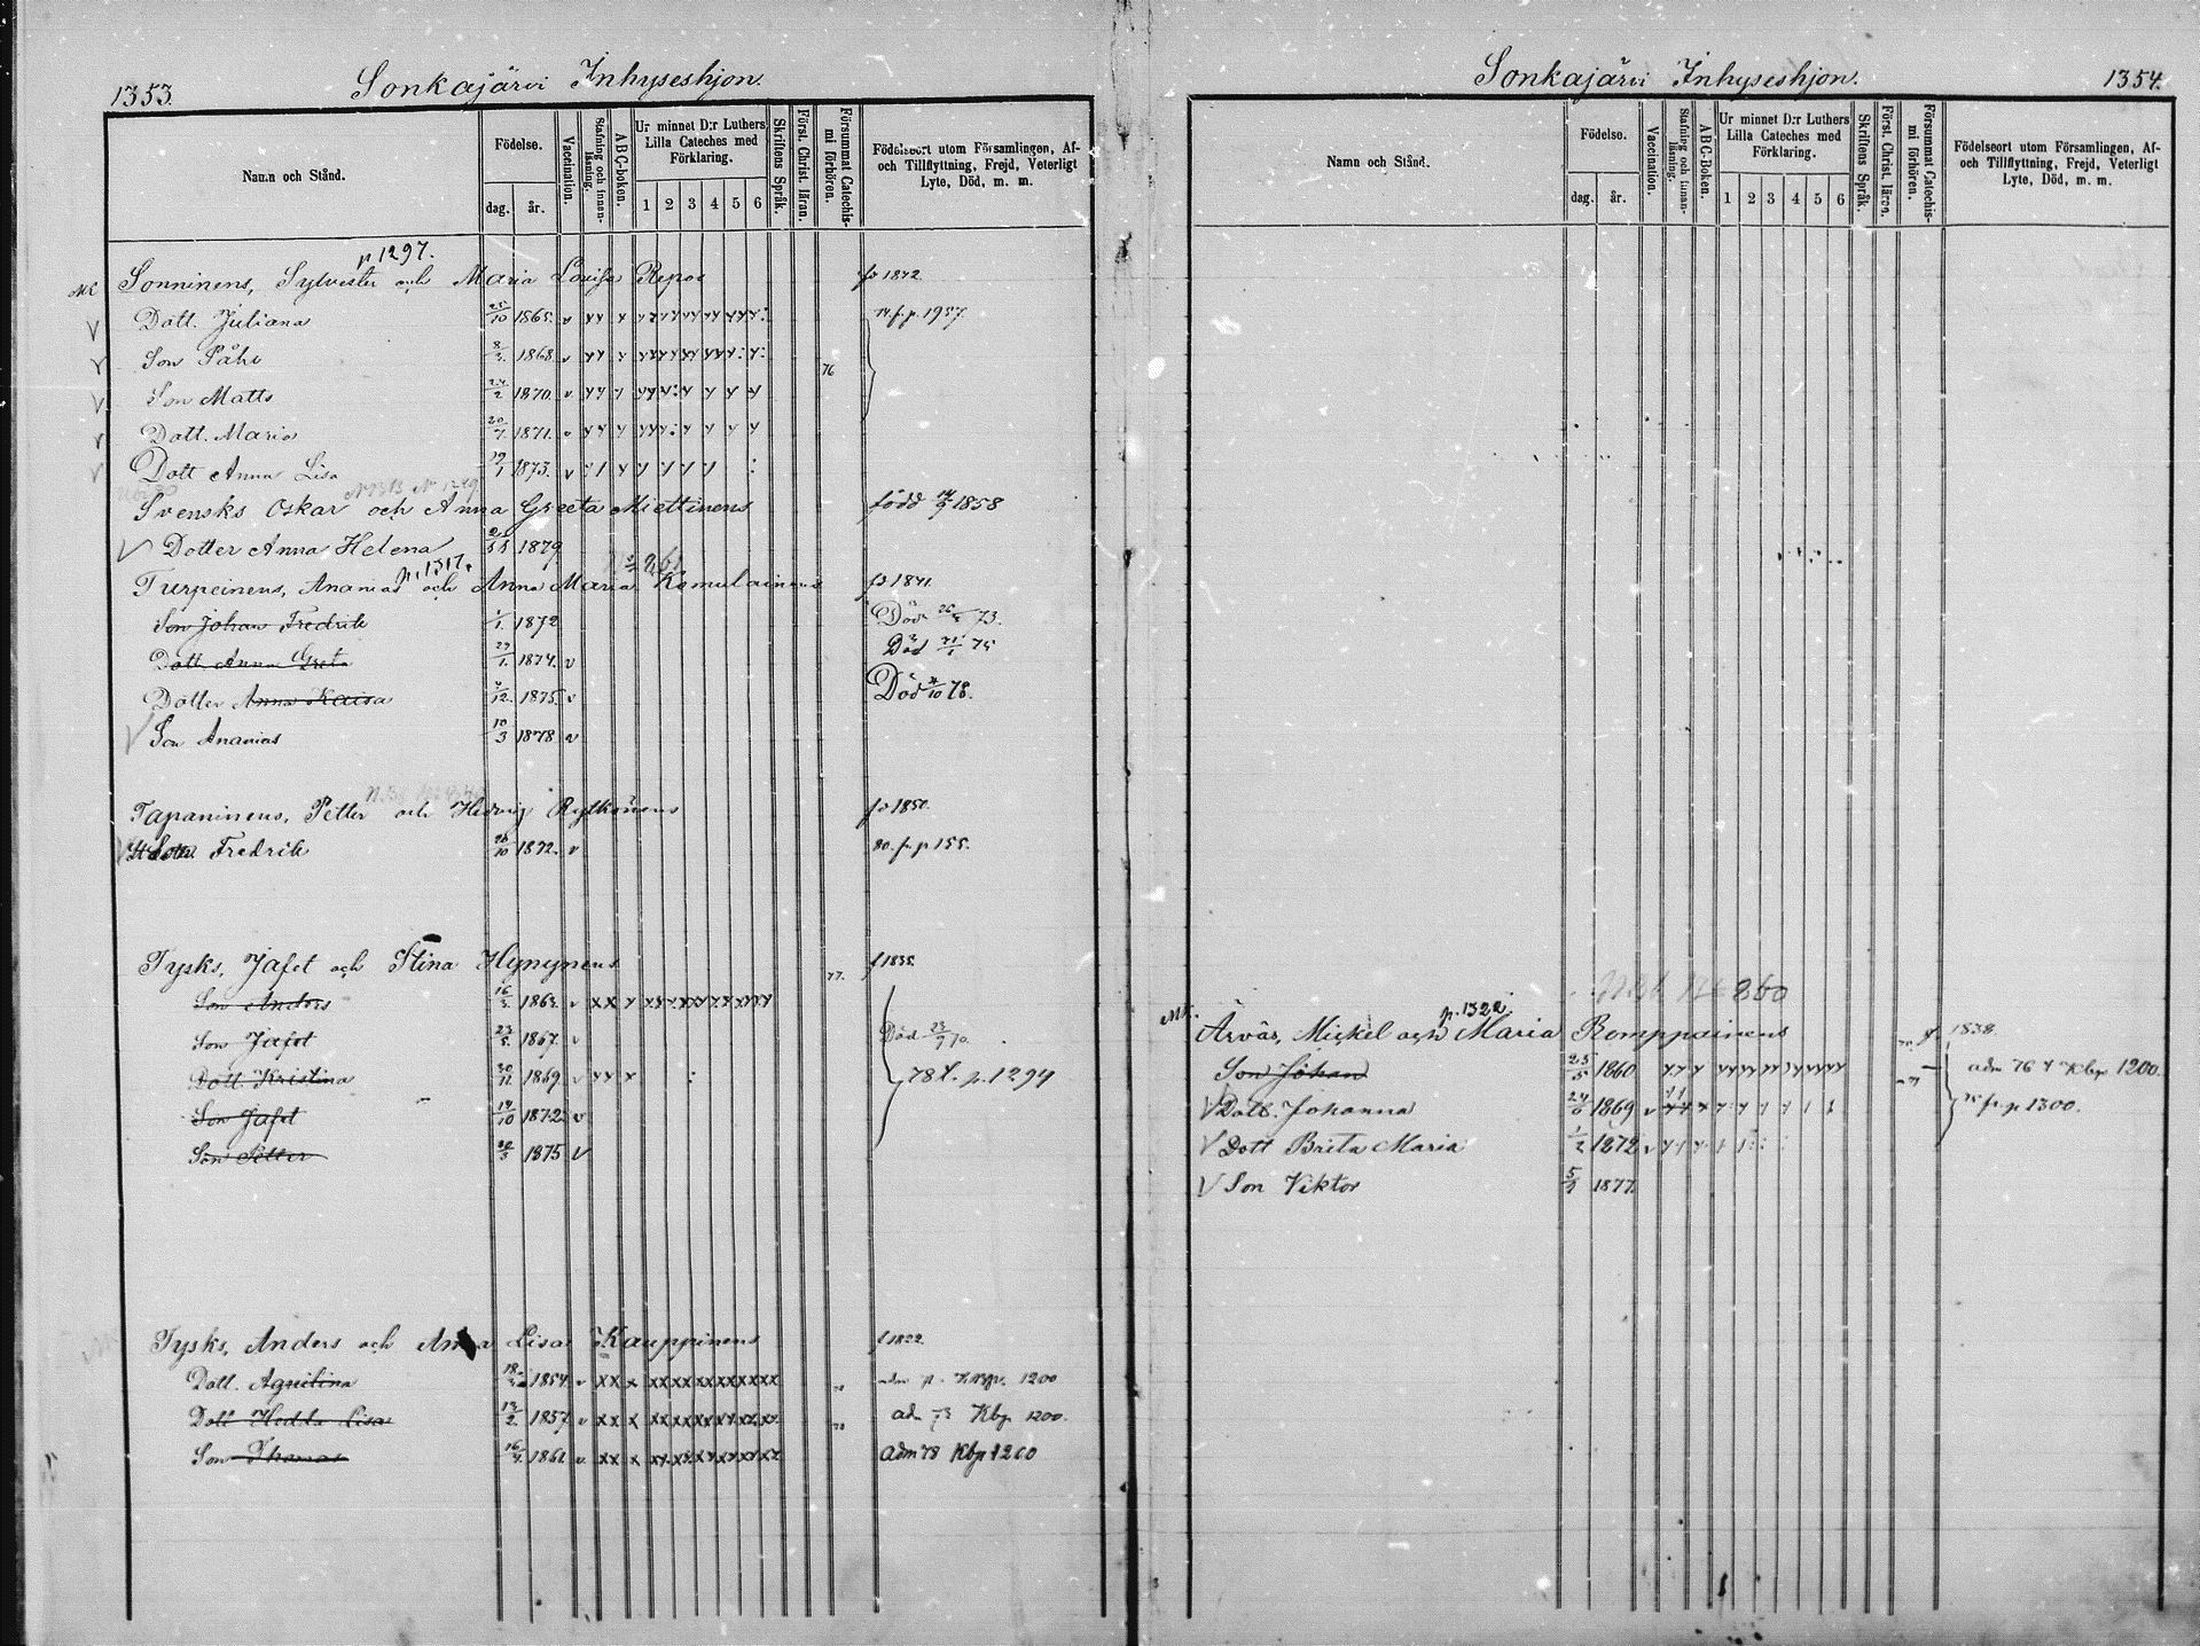 1353.
Sonkajärvi Inhyseshjon.
Namn och Stånd.
Födelse.
dag. år.
Vaccination.
Stafning och innanläsning.
ABC-Boken.
Ur minnet D:r Luthers Lilla Cateches med Förklaring.
1 2 3 4 5 6
Skriftens Språk.
Först. Christ. läran.
Försummat Catechismi förhören.
Födelseort utom Församlingen, Af- och Tillflyttning, Frejd, Veterligt Lyte, Död, m. m.
p 1297.
Sonninens, Sylvester och Maria Lovisa Repos 1842
Dott. Juliana 25/10 1865. v p. 1957.
Son Påhl 8/3 1868 v 76
Son Matts 24/2 1870. v
Dott. Maria 20/7 1871. v
Dott Anna Lisa 19/1 1873. v
Svensks Oskar och Anna Greeta Miettinens född 1858
Dotter Anna Helena 1879
p. 1317.
Turpeinens, Ananias och Anna Maria Komulainens 1841.
Son Johan Fredrik 1/1 1872 Död 73.
Dott. Anna Greta 27/1 1874. v Död 75
Dotter Anna Kaisa 1875 v Död 78.
Son Ananias 10/3 1878 v
Tapaninens, Petter och Hedvig Rytkönens 1850.
Fredrik 26/10 1872. v 80. f. p 155.
Tysks, Jafet och Stina Hynynens 77. f 1835.
Son Anders 16/3 1863. v
Son Jafet 23/5 1867. v Död 23/9 70.
Dott. Kristina 30/11 1869 v 78 t. p. 1294
Son Jafet 14/10 1872. v
Son Petter 1875 v
Tysks, Anders och Anna Lisa Kauppinens f 1822.
Dott. Agnilina 1854. v 1200
Dott Hedda Lisa 13/2 1857. v adm 73 Kbp 1200.
Son Thomas 16/4 1861. v adm 78 Kbp 1200
Sonkajärvi Inhyseshjon.
1354.
Namn och Stånd.
Födelse.
dag. år.
Vaccination.
Stafning och innanläsning.
ABC-Boken.
Ur minnet D:r Luthers Lilla Cateches med Förklaring.
1 2 3 4 5 6
Skriftens Språk.
Först. Christ. läran.
Försummat Catechismi förhören.
Födelseort utom Församlingen, Af- och Tillflyttning, Frejd, Veterligt Lyte, Död, m. m.
860
p. 1322.
Arvās, Mickel och Maria Romppainens f. 1838.
Son Johan 25/5 1860 adm 76 Kbp 1200.
Dott. Johanna 24/6 1869 v f. p 1300.
Dott Brita Maria 1/2 1872 v
Son Viktor 5/9 1877.